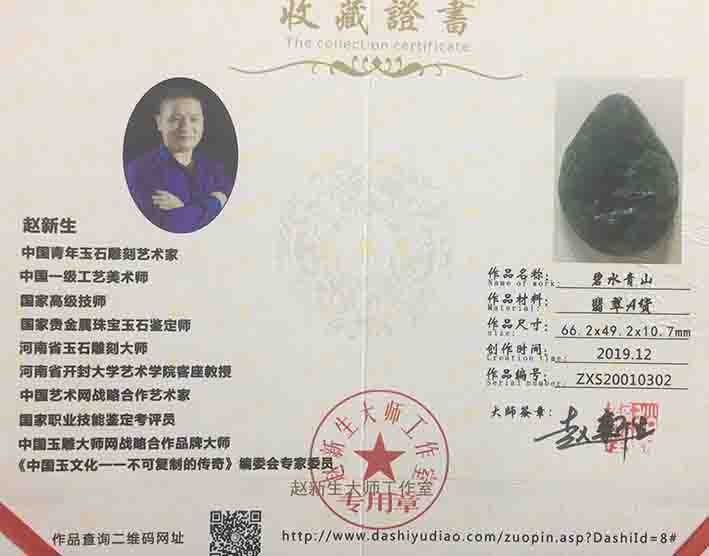 收藏證書
The collection certificate
赵新生
中国青年玉石雕刻艺术家
中国一级工艺美术师
国家高级技师
国家贵金属珠宝玉石鉴定师
河南省玉石雕刻大师
河南省开封大学艺术学院客座教授
中国艺术网战略合作艺术家
国家职业技能鉴定考评员
中国玉雕大师网战略合作品牌大师
《中国玉文化一一不可复制的传奇》编委会专家委员
作品名称: 碧水青山
Name of work:
作品材料: 翡翠A货
Material:
作品尺寸: 66.2x49.2x10.7mm
size:
创作时间: 2019.12
Creation time:
作品编号: ZXS20010302
Serial number:
大师签章: 赵新生
赵新生大师工作室
赵新生大师工作室
专用章
作品查询二维码网址
http://www.dashiyudiao.com/zuopin.asp?DashiId=8#